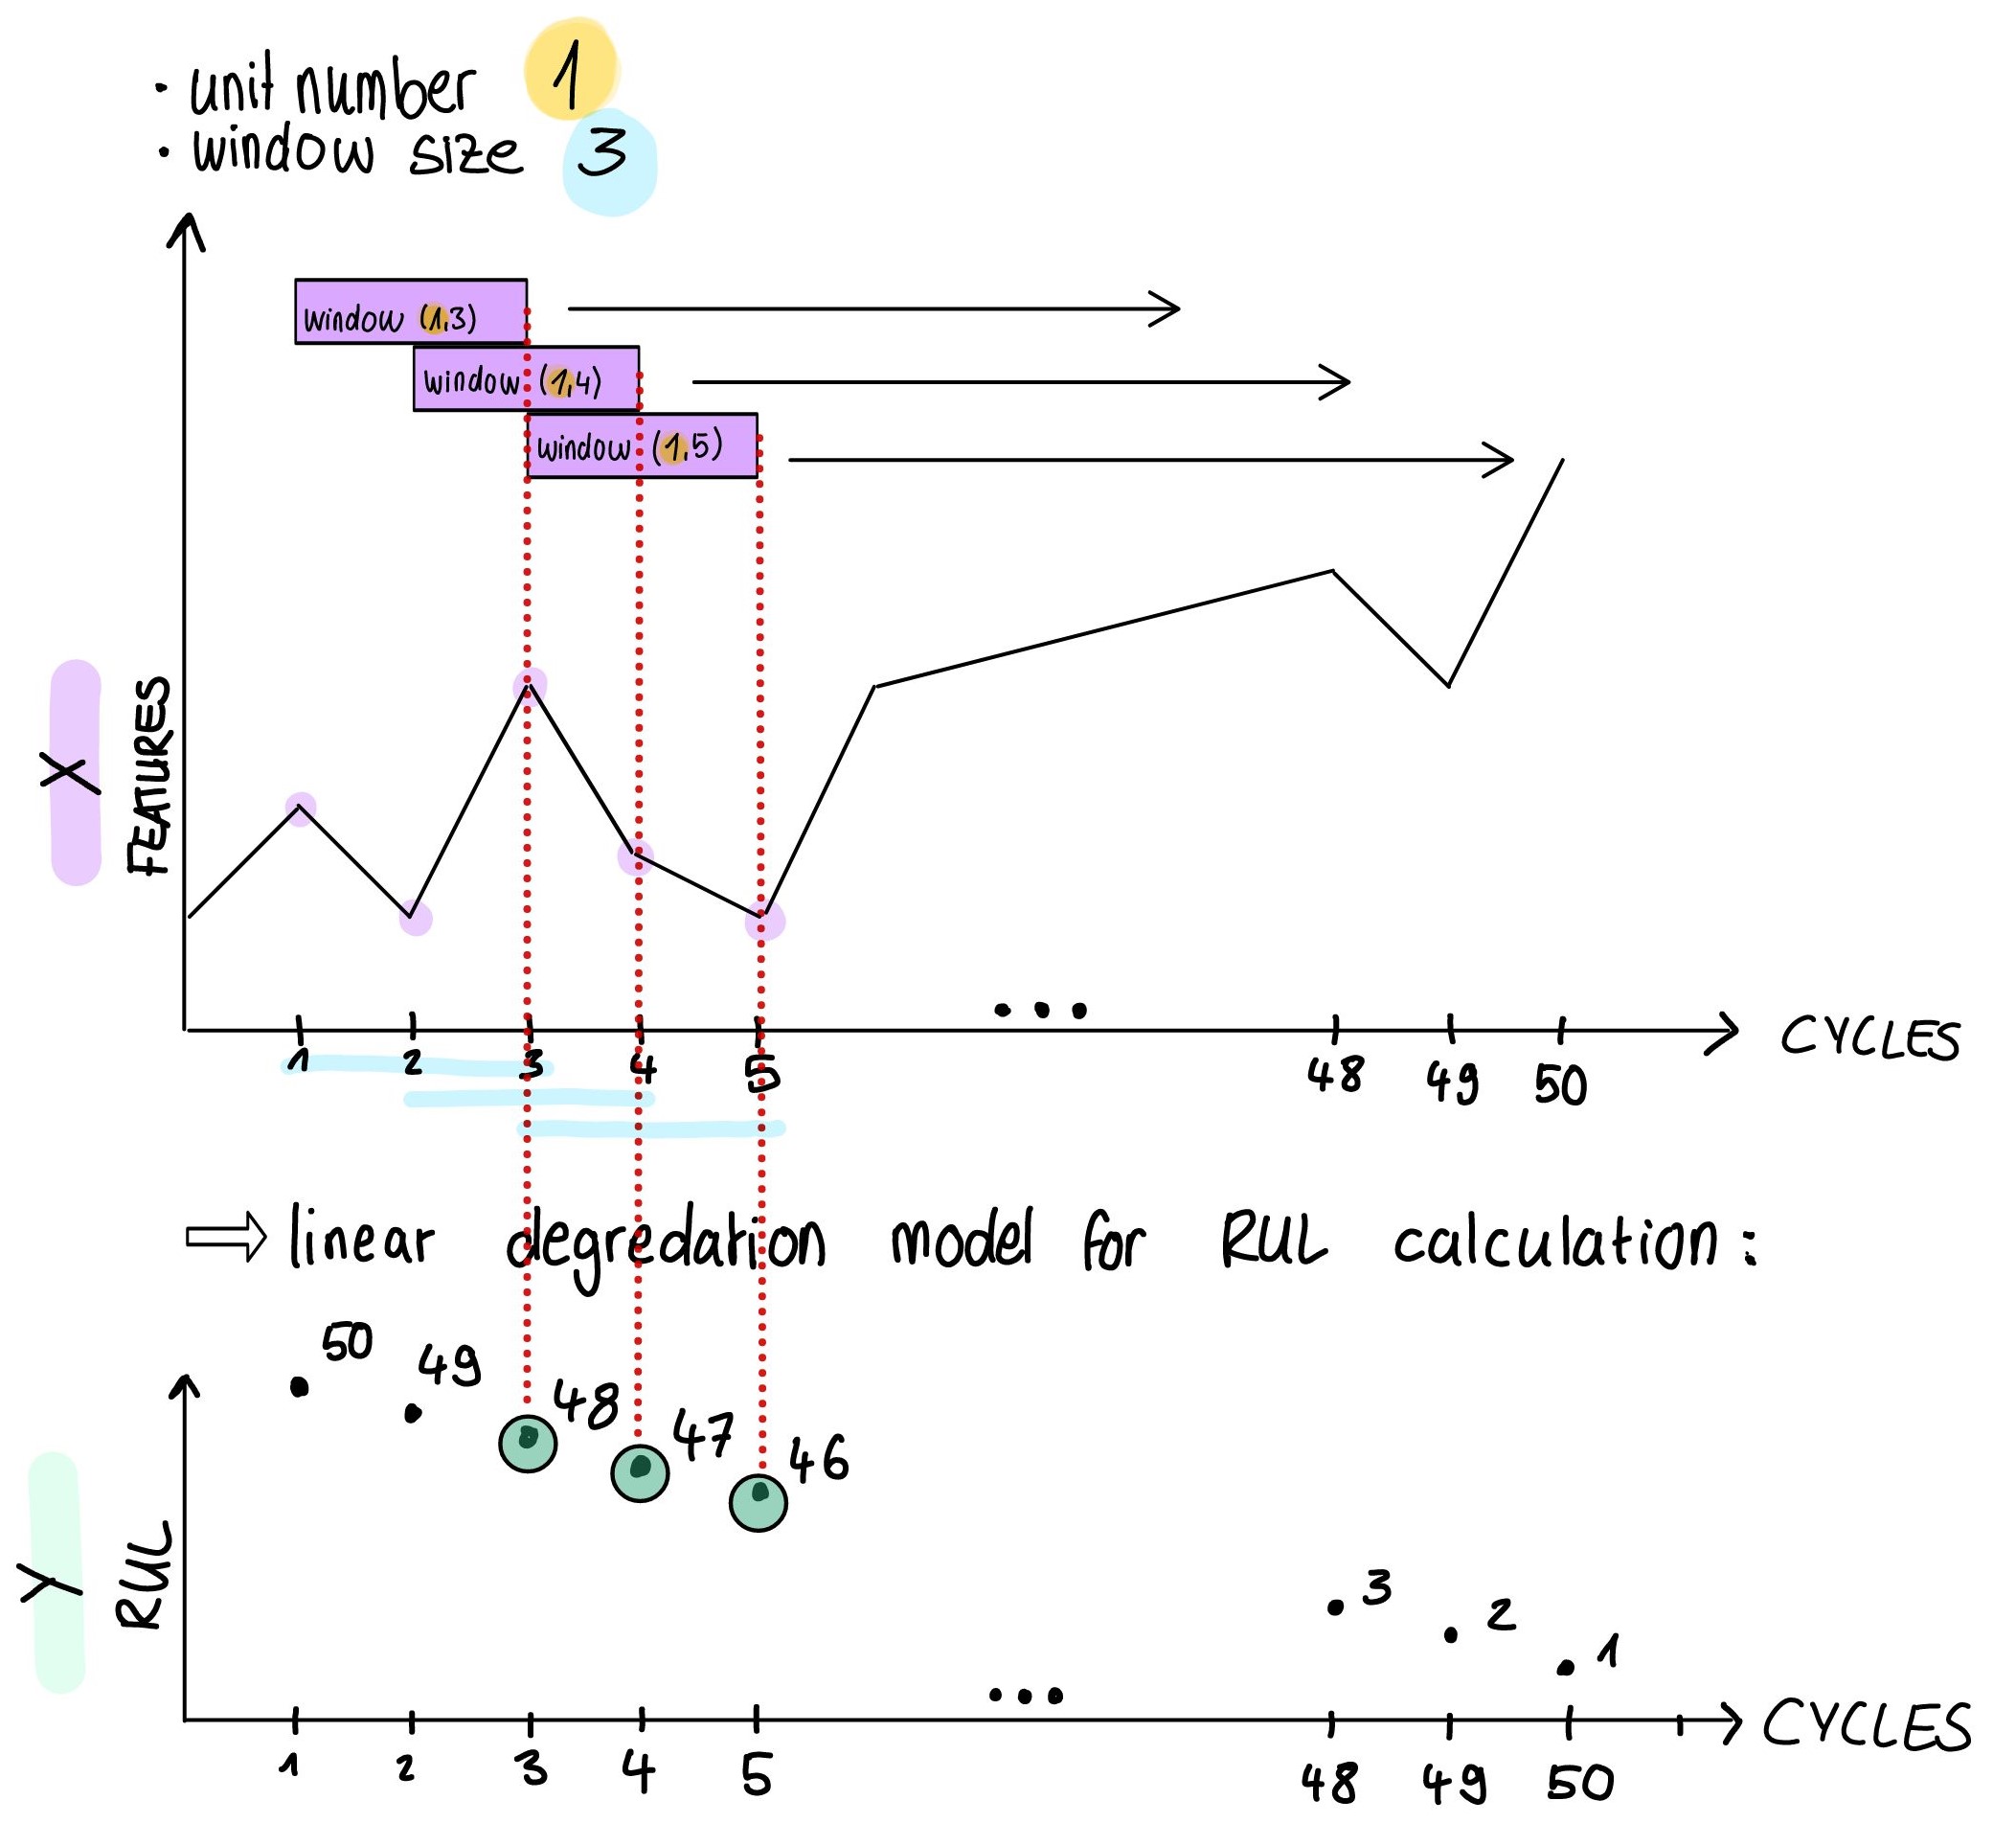 · unit number 1
· window size 3
window (1,3)
window (1,4)
window (1,5)
X
FEATURES
...
1 2 3 4 5 48 49 50
CYCLES
⇒ linear degredation model for RUL calculation:
50
49
48
47
46
3
2
1
Y
RUL
...
1 2 3 4 5 48 49 50
CYCLES